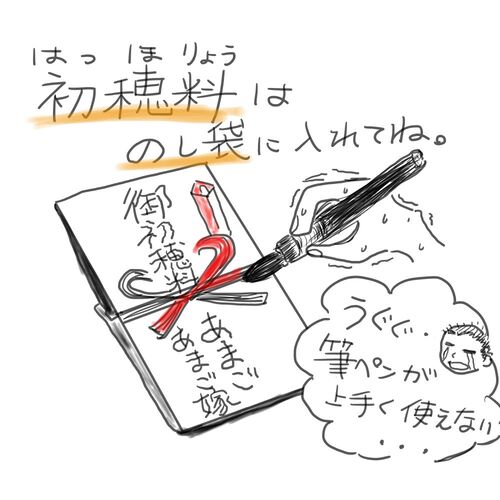 はつほりょう
初穂料は
のし袋に入れてね。
御初穂料
あまご
あまご嫁
うぐぐ・
筆ペンが
上手く使えない
・・・